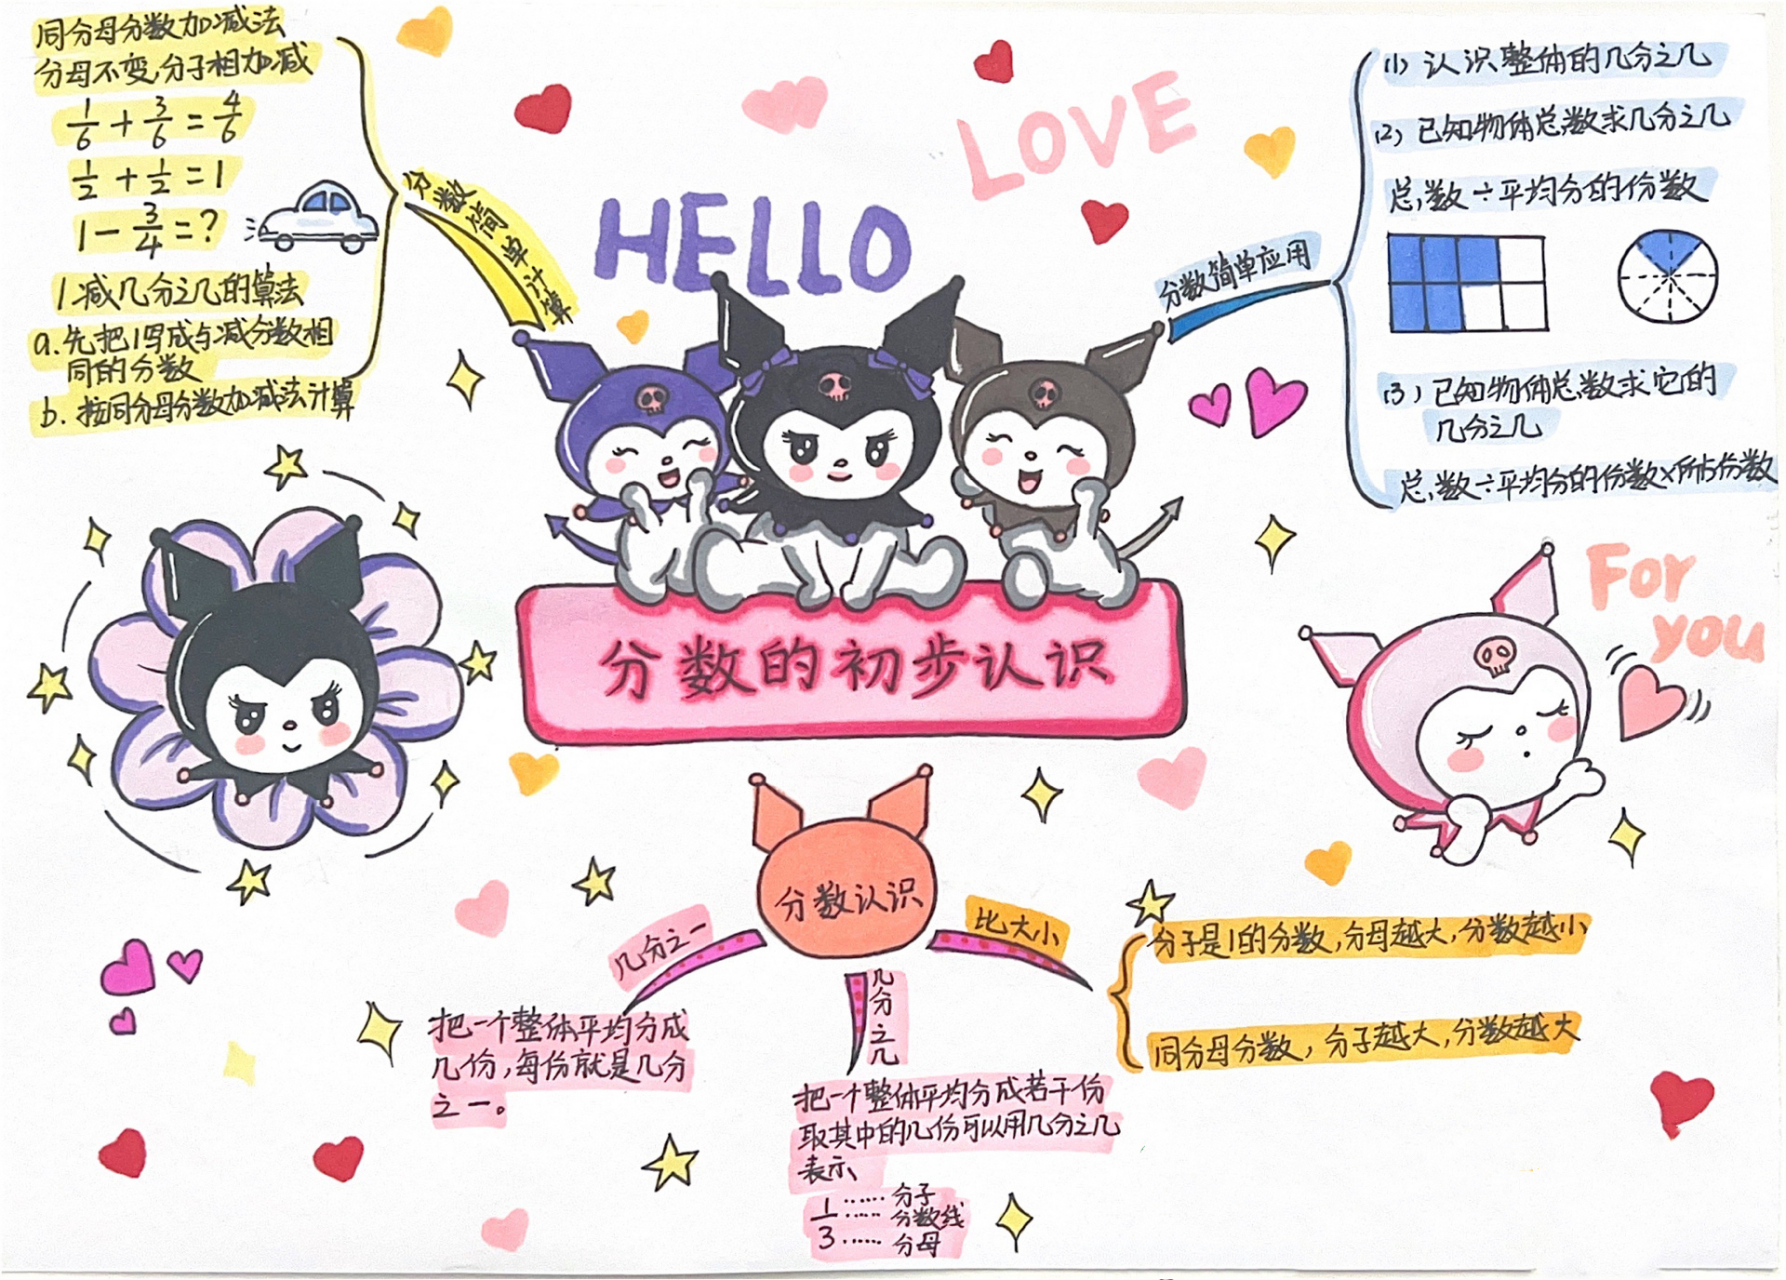 同分母分数加减法
分母不变,分子相加减
1/6 + 3/6 = 4/6
1/2 + 1/2 = 1
1 - 3/4 = ?
1.减几分之几的算法
a.先把1写成与减分数相
同的分数
b.按同分母分数加减法计算
分数简单计算
HELLO
LOVE
分数简单应用
(1) 认识整体的几分之几
(2) 已知物体总数求几分之几
总数÷平均分的份数
(3) 已知物体总数求它的
几分之几
总数÷平均分的份数×所占份数
For
you
分数的初步认识
分数认识
几分之一
把一个整体平均分成
几份,每份就是几分
之一。
几分之几
把一个整体平均分成若干份
取其中的几份可以用几分之几
表示
1 ...... 分子
...... 分数线
3 ...... 分母
比大小
分子是1的分数,分母越大,分数越小
同分母分数,分子越大,分数越大